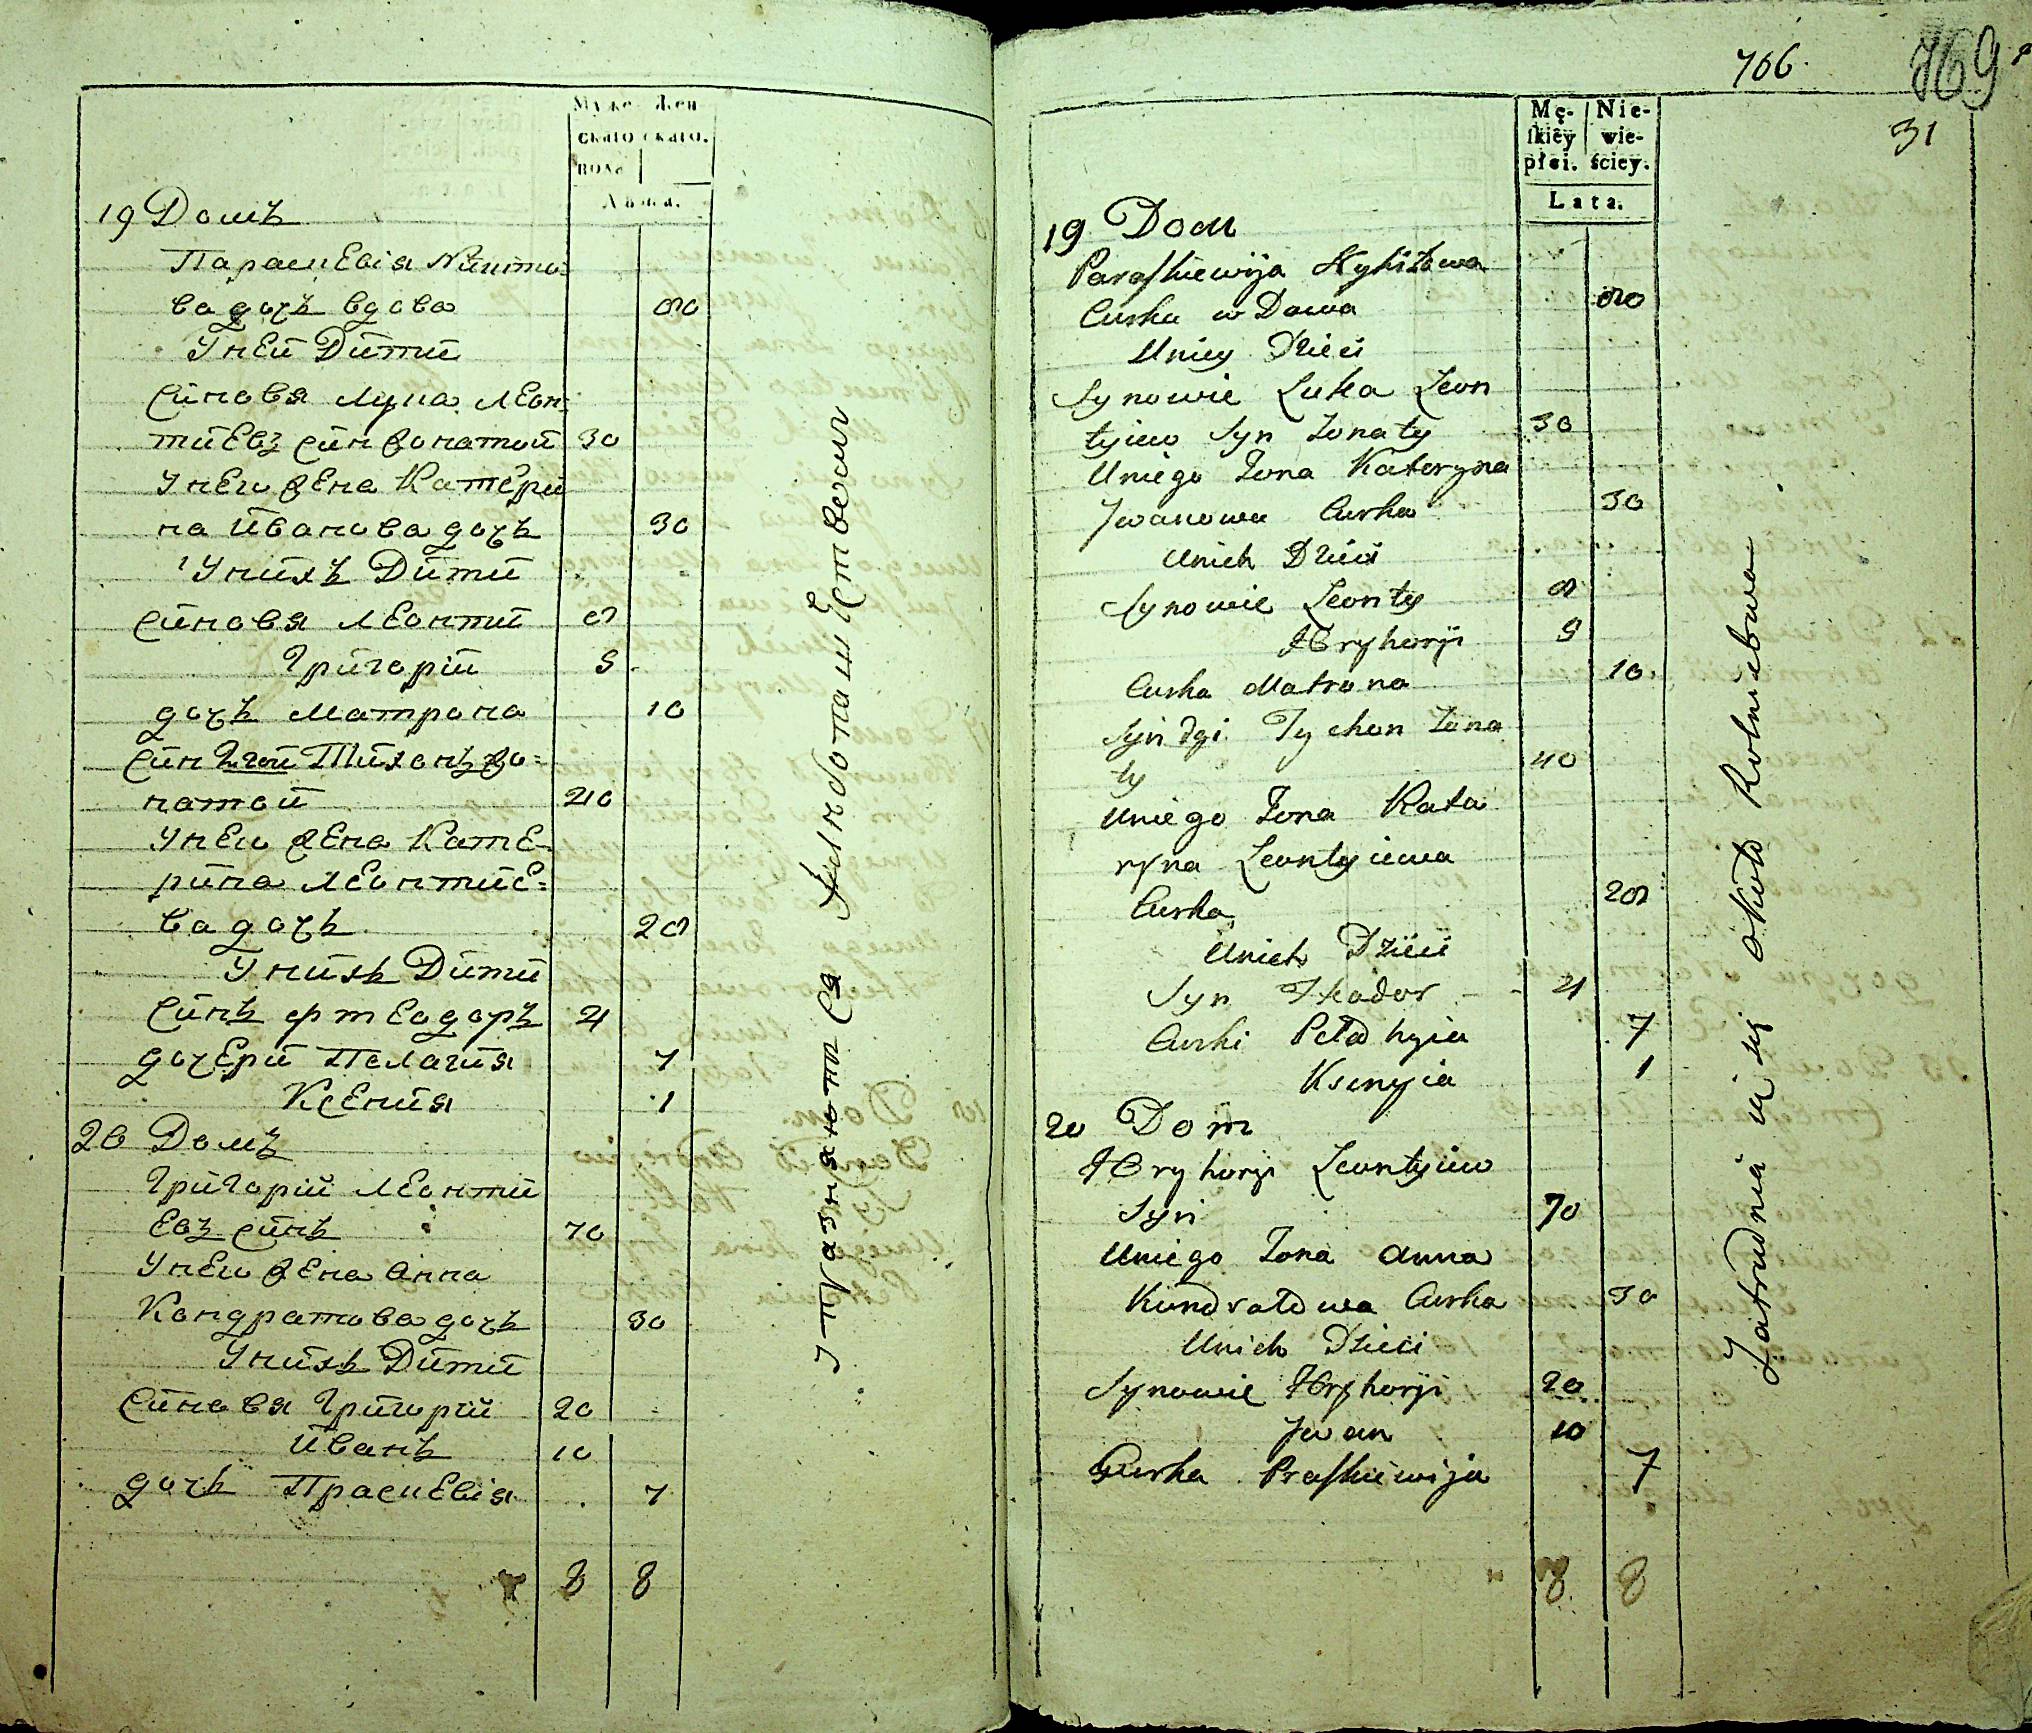 Муже Жен
скаго скаго.
полс
Лѣта.
19 Домъ
Параскевія Никито=
ва дочь вдова 80
Уней Дити
Синовя Лука Леон=
тиевъ син жонатой 30
Унего жена Катери
на Иванова дочь 30
Унихъ Дити
Синовя Леонтий 8
Григорій 5
дочь Матрона 10
Син Тихонъ жо=
натой 40
Унего жена Кате=
рина Леонтие=
ва дочь 28
Унихъ Дити
Синъ фтеодоръ 4
дочери Пелагия 7
Ксения 1
20 Домъ
Григорий Леонтий
евъ синъ 70
Унего жена Анна
Кондратова дочь 50
Унихъ Дити
Синовя Григорий 20
Иванъ 10
дочь Праскевія 7
8 8
упражняют ся
766.
769
31
Mę- Nie-
ſkiéy wie-
płci. ściey.
Lata.
19 Dom
Paraſkiewija Nykitowa
Curka w Dowa 80
Uniey Dzieci
Synowie Luka Leon
tyiew Syn Zonaty 30
Uniego Zona Kateryna
Jwanowa Curka 30
Unich Dzieci
Synowie Leonty 8
Hryhoryi 5
Curka Matrona 10
Syn dgi Tychon Zona
ty 40
Uniego Zona Kata
ryna Leontyiewa
Curka 28
Unich Dzieci
Syn Fteodor 4
Curki Pelahyia 7
Ksenyia 1
20 Dom
Hryhoryi Leontyiew
Syn 70
Uniego Zona Anna
Kundratowa Curka 50
Unich Dzieci
Synowie Hryhoryi 20
Jwan 10
Curka Praſkiewija 7
8 8
Zatrudnia ią się około Rolnictwa